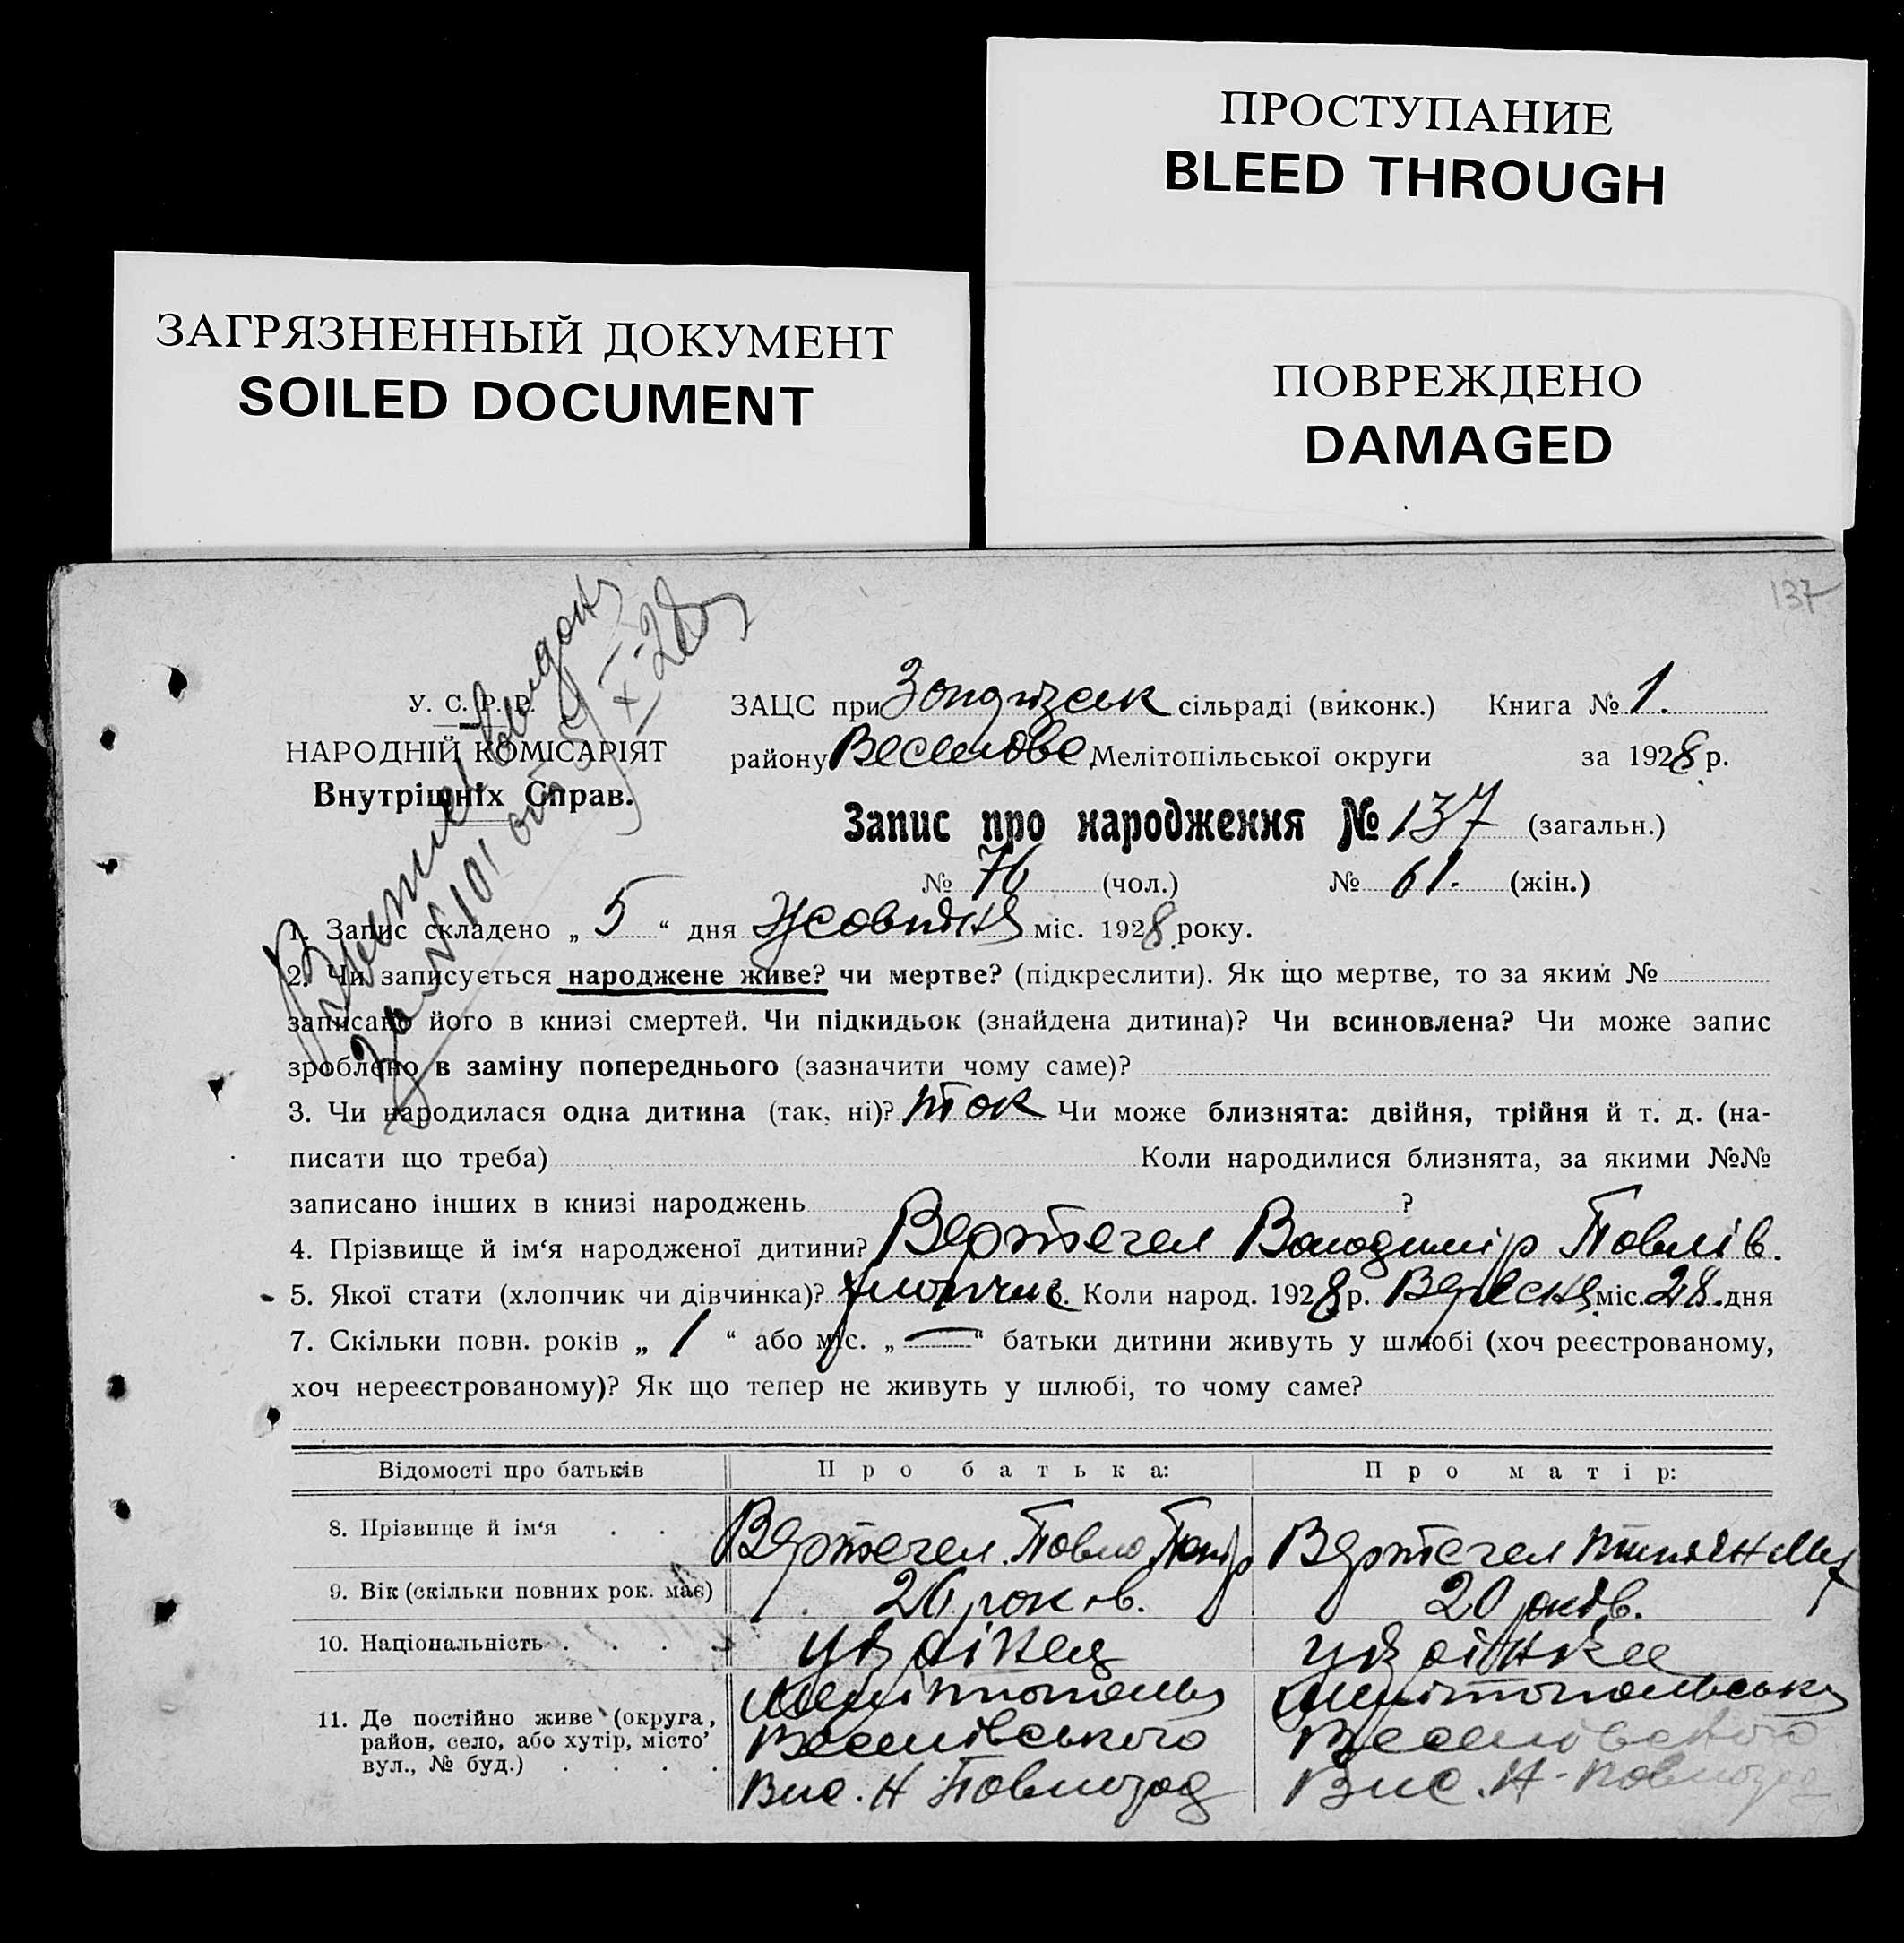 ПРОСТУПАНИЕ
BLEED THROUGH
ЗАГРЯЗНЕННЫЙ ДОКУМЕНТ
SOILED DOCUMENT
ПОВРЕЖДЕНО
DAMAGED
137
У. С. Р. Р.
НАРОДНІЙ КОМІСАРІЯТ
Внутрішніх Справ.
ЗАЦС при сільраді (виконк.) Книга № 1.
району Веселове Мелітопільської округи за 1928 р.
Запис про народження № 137 (загальн.)
№ 76 (чол.) № 61. (жін.)
1. Запис складено „ 5 “ дня Жовтня міс. 1928 року.
2. Чи записується народжене живе? чи мертве? (підкреслити). Як що мертве, то за яким №
записано його в книзі смертей. Чи підкидьок (знайдена дитина)? Чи всиновлена? Чи може запис
зроблено в заміну попереднього (зазначити чому саме)?
3. Чи народилася одна дитина (так, ні)? так Чи може близнята: двійня, трійня й т. д. (на-
писати що треба) Коли народилися близнята, за якими №№
записано інших в книзі народжень ?
4. Прізвище й ім‘я народженої дитини? Вертегел Володимір Павлів.
5. Якої стати (хлопчик чи дівчинка)? хлопчик 6. Коли народ. 1928 р. Вересня міс. 28. дня
7. Скільки повн. років „ 1 “ або міс. „ — “ батьки дитини живуть у шлюбі (хоч реєстрованому,
хоч нереєстрованому)? Як що тепер не живуть у шлюбі, то чому саме?
Відомості про батьків Про батька: Про матір:
8. Прізвище й ім‘я . . . Вертегел Павло Вертегел
9. Вік (скільки повних рок. має) 26 років. 20 років.
10. Національність . . . . українец українка
11. Де постійно живе (округа, район, село, або хутір, місто вул., № буд.) . . . .
Веселівського Веселівського
Вис. Н Павлоград Вис. Н-Павлоград